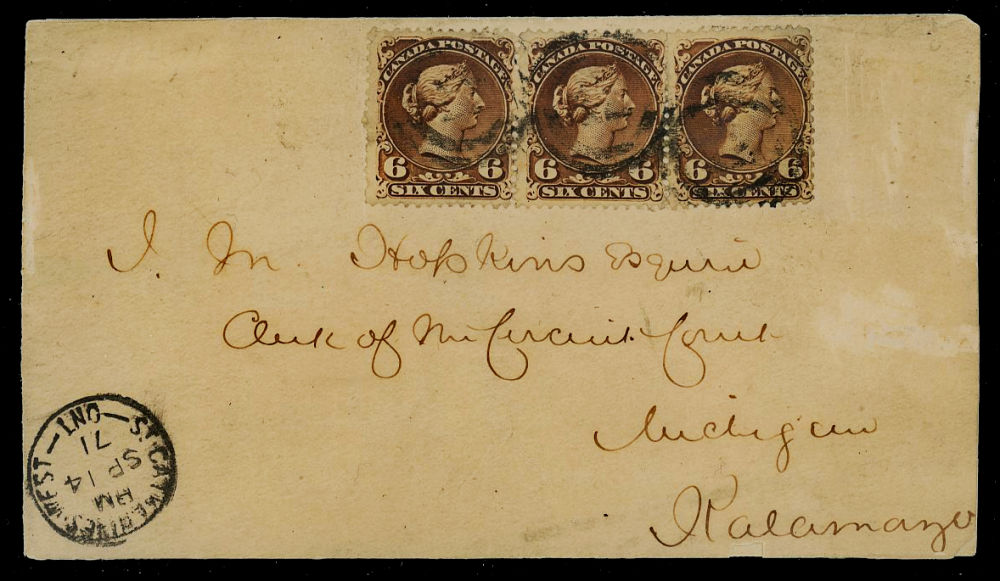 CANADA POSTAGE CANADA POSTAGE CANADA POSTAGE
6 6 6 6 6 6
SIX CENTS SIX CENTS SIX CENTS
J. M. Hopkins Esquire
Clerk of the Circuit Court
Michigan
Kalamazo
ST. CATHERINES WEST — ONT —
PM
SP 14
71